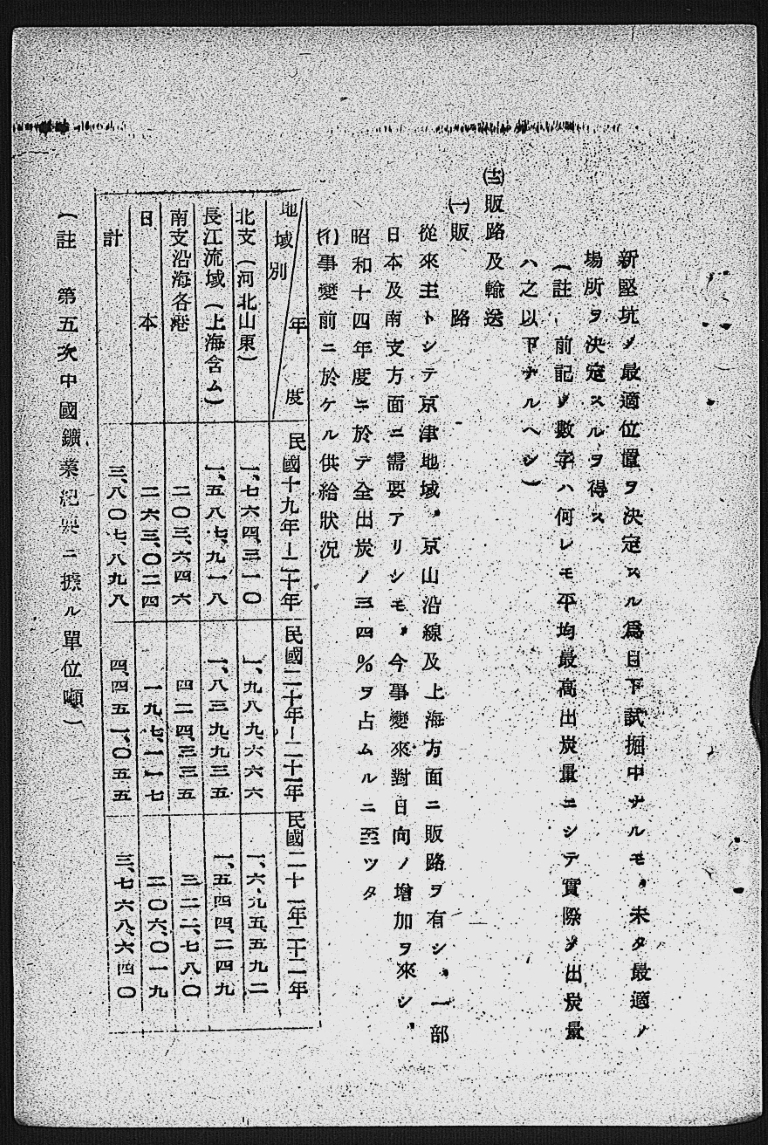 新竪坑ノ最適位置ヲ決定スル爲目下試掘中ナルモ、未タ最適ノ
場所ヲ決定スルヲ得ス
(註 前記ノ數字ハ何レモ平均最高出炭量ニシテ實際ノ出炭量
ハ之以下ナルヘシ)
(十三)販路及輸送
(一)販路
從來主トシテ京津地域、京山沿線及上海方面ニ販路ヲ有シ、一部
日本及南支方面ニ需要アリシモ、今事變來對日向ノ增加ヲ來シ、
昭和十四年度ニ於テ全出炭ノ三四%ヲ占ムルニ至ツタ
(イ)事變前ニ於ケル供給狀況
地域別 年度 民國十九年―二十年 民國二十年―二十一年 民國二十一年二十二年
北支(河北山東) 一、七六四、三一〇 一、九八九、六六六 一、六九五、五九二
長江流域(上海含ム) 一、五八七、九一八 一、八三九、九三五 一、五四四、二四九
南支沿海各港 二〇三、六四六 四二四、三三五 三二二、七八〇
日本 二六三、〇二四 一九七、一一七 二〇六、〇一九
計 三、八〇七、八九八 四、四五一、〇五五 三、七六八、六四〇
(註 第五次中國鑛業紀要ニ據ル單位噸)